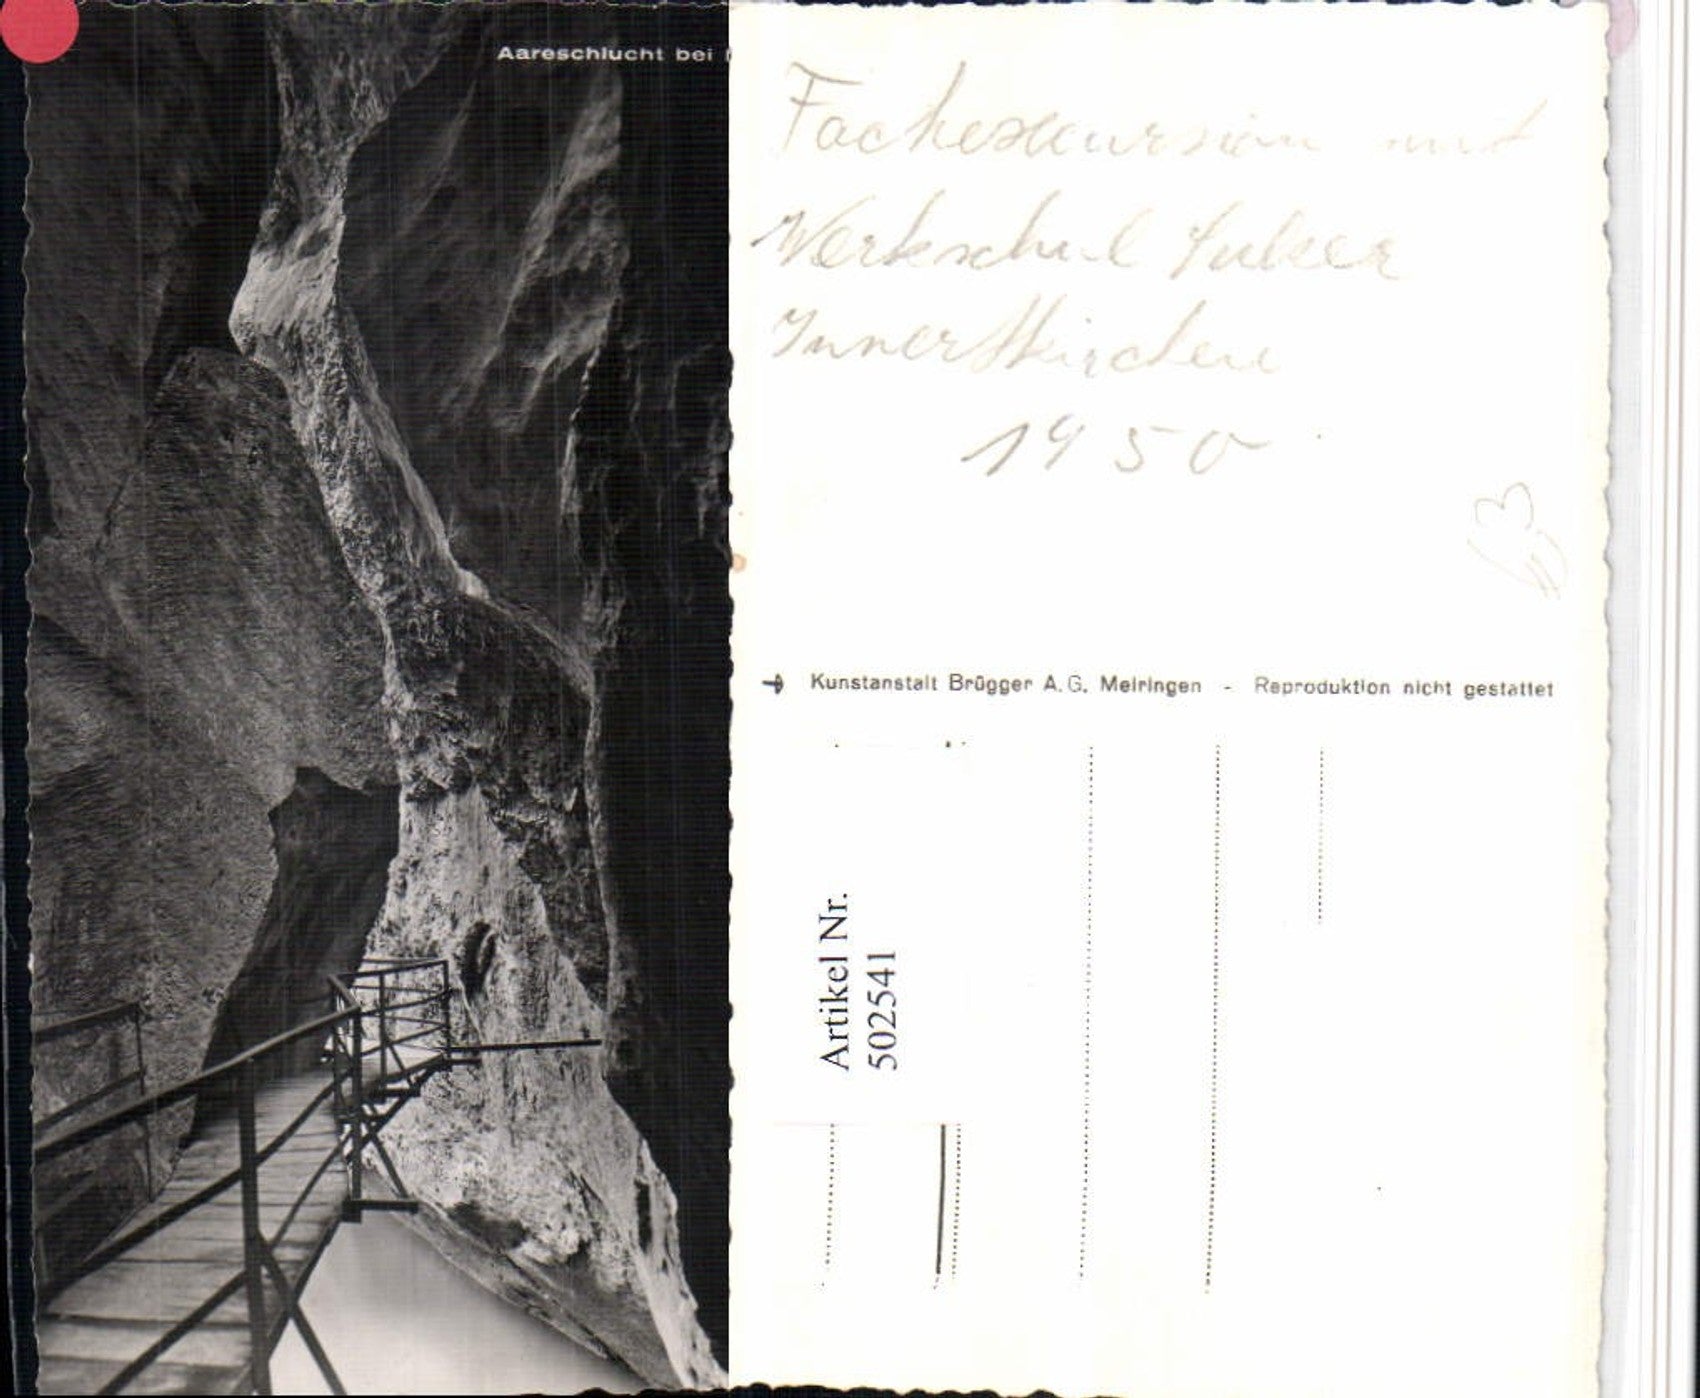 Aareschlucht bei
Fachexkursion mit
Werkschul Sulzer
Innertkirchen
1950
Kunstanstalt Brügger A.G. Meiringen - Reproduktion nicht gestattet
Artikel Nr.
502541